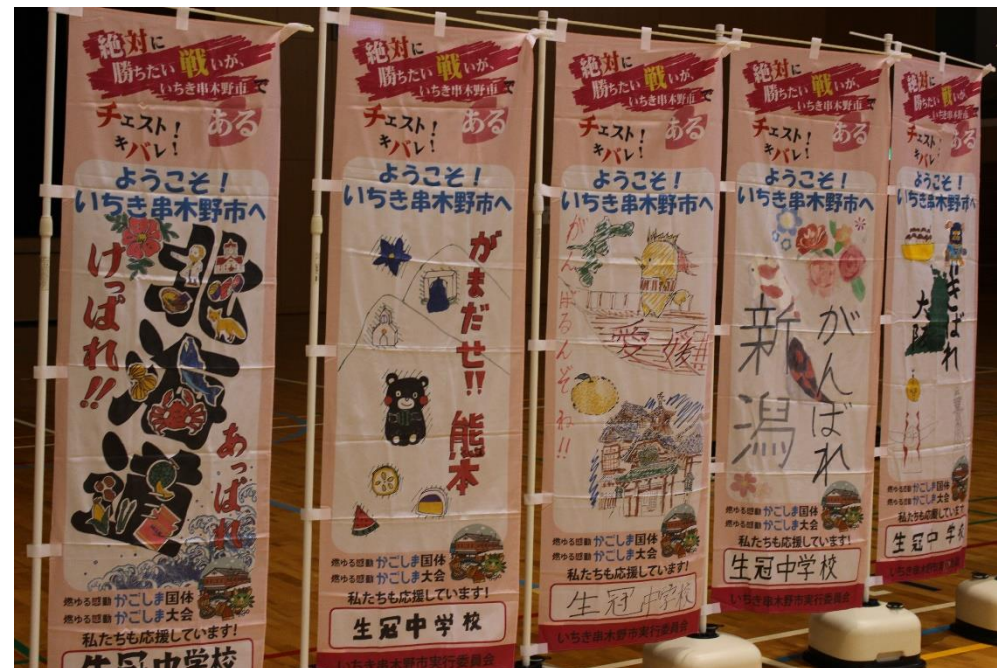 絶対に
勝ちたい戦いが、
いちき串木野市で
ある
チェスト!
キバレ!
ようこそ!
いちき串木野市へ
けっぱれ!!
北海道
あっぱれ
燃ゆる感動かごしま国体
燃ゆる感動かごしま大会
私たちも応援しています!
生冠中学校
絶対に
勝ちたい戦いが、
いちき串木野市で
ある
チェスト!
キバレ!
ようこそ!
いちき串木野市へ
がまだせ!!熊本
燃ゆる感動かごしま国体
燃ゆる感動かごしま大会
私たちも応援しています!
生冠中学校
いちき串木野市実行委員会
絶対に
勝ちたい戦いが、
いちき串木野市で
ある
チェスト!
キバレ!
ようこそ!
いちき串木野市へ
愛媛!!
燃ゆる感動かごしま国体
燃ゆる感動かごしま大会
私たちも応援しています!
生冠中学校
いちき串木野市実行委員会
絶対に
勝ちたい戦いが、
いちき串木野市で
ある
チェスト!
キバレ!
ようこそ!
いちき串木野市へ
がんばれ
新潟
燃ゆる感動かごしま国体
燃ゆる感動かごしま大会
私たちも応援しています!
生冠中学校
いちき串木野市実行委員会
絶対に
勝ちたい戦いが、
いちき串木野市で
ある
チェスト!
キバレ!
ようこそ!
いちき串木野市へ
きばれ
大阪
燃ゆる感動かごしま国体
燃ゆる感動かごしま大会
私たちも応援しています!
生冠中学校